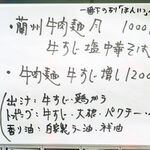 ・蘭州牛肉麺風 1000
牛すじ塩中華そば
・牛肉麺 牛すじ増し 1200
出汁：牛すじ・鶏ガラ
トッピング：牛すじ・大根・パクチー
香り油：自家製ラー油・ネギ油